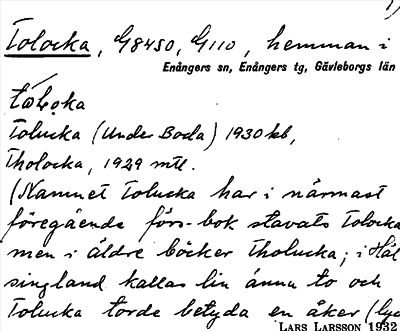 Tolocka, G8450, G110, hemman i
Enångers sn, Enångers tg, Gävleborgs län
Tolucka (Under Boda) 1930 kb,
Tholocka, 1929 mtl.
(Namnet Tolucka har i närmast
föregående förs-bok stavats Tolocka
men i äldre böcker Tholucka; i Häl
singland kallas lin ännu to och
Tolucka torde betyda en åker (lyc
LARS LARSSON 1932